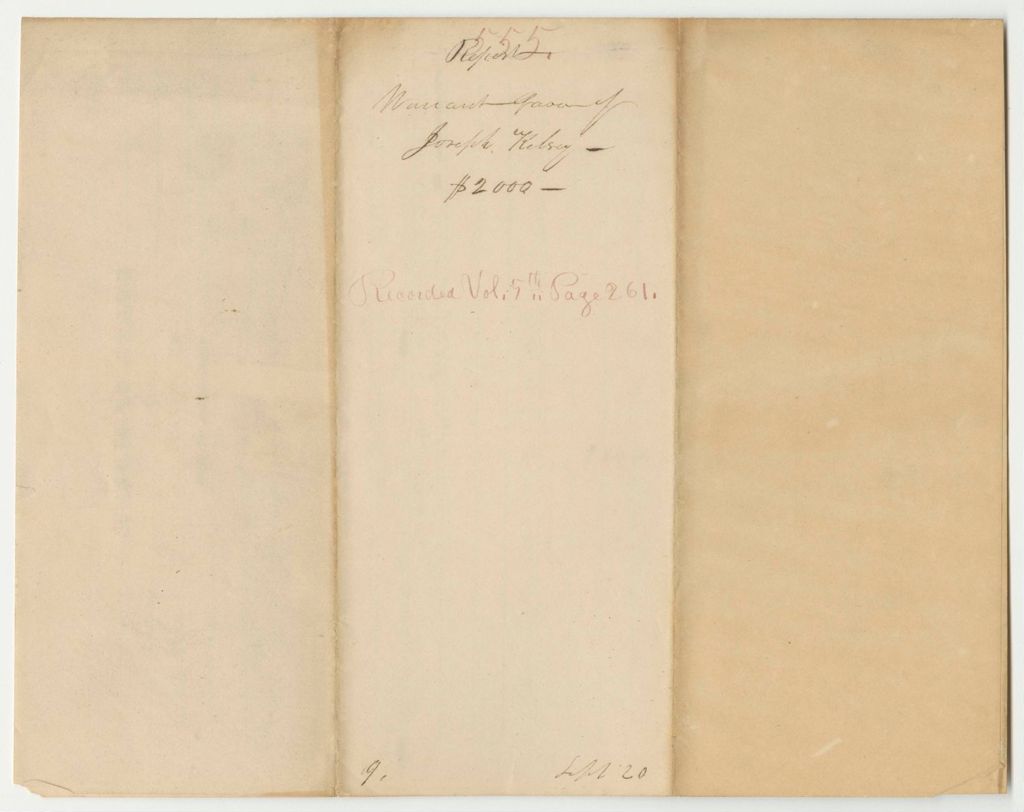 555.
Report
Warrant favor of
Joseph Kelsey —
$2000 —
Recorded Vol. 5th Page 261.
9.
Sept 20